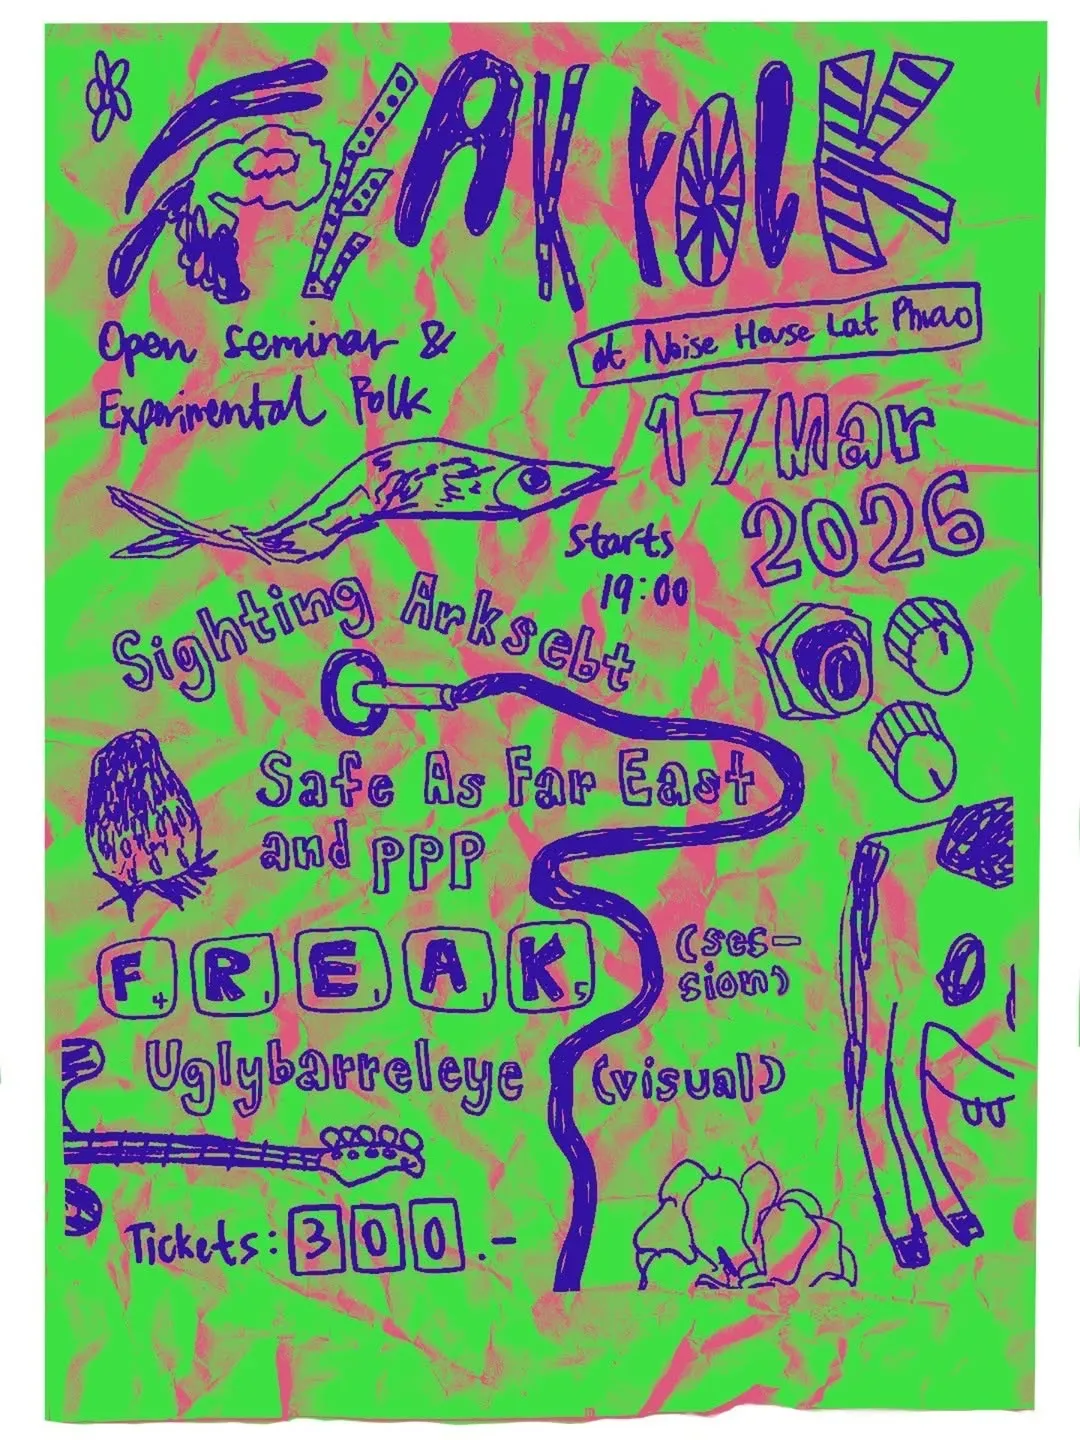 FREAK FOLK
Open Seminar &
Experimental Folk
at Noise House Lat Phrao
17 Mar
2026
Starts
19:00
Sighting Arksebt
Safe As Far East
and ppp
F4 R1 E1 A1 K5
(ses-
sion)
Uglybarreleye (visual)
Tickets: 300.-